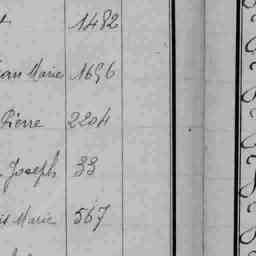 1482
Marie 1696
Pierre 2204
Joseph 33
Marie 567